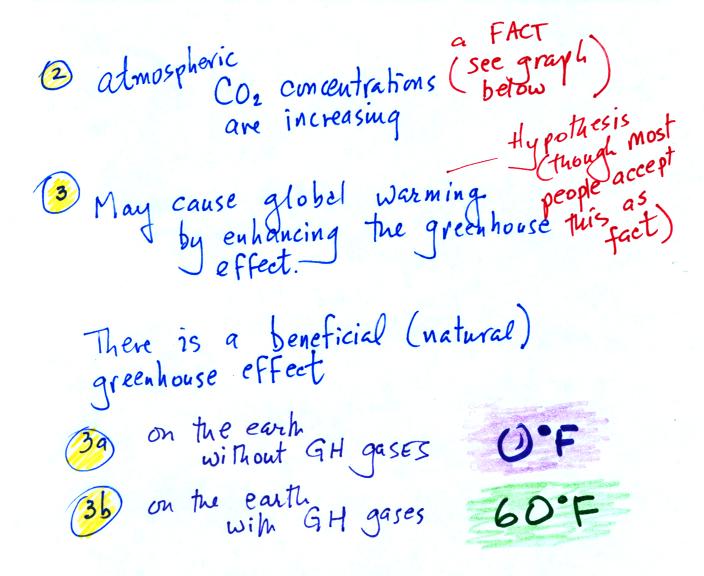 2 atmospheric
CO₂ concentrations
are increasing
a FACT
(see graph
below)
3 May cause global warming
by enhancing the greenhouse
effect.
Hypothesis
(though most
people accept
this as
fact)
There is a beneficial (natural)
greenhouse effect
3a on the earth
without GH gases
0°F
3b on the earth
with GH gases
60°F